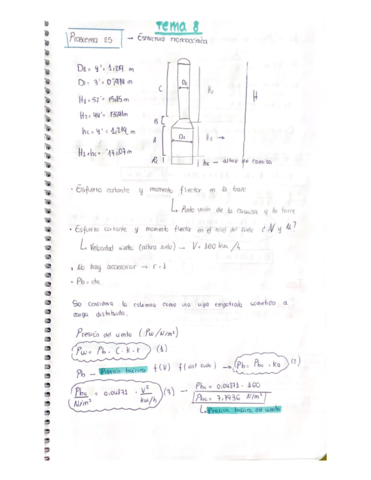 Tema 8
Problema 25 → Estructura monocónica
D2 = 4' = 1,219 m
D1 = 3' = 0,914 m
H1 = 52' = 15,85 m
H2 = 44' = 13,41 m
hc = 4' = 1,219 m
H1 + hc = 17,07 m
C
B
A
D1
D2
H
hc → altura de camisa
· Esfuerzo cortante y momento flector en la base
↳ Punto unión de la camisa y la torre
· Esfuerzo cortante y momento flector en el nivel del suelo ¿V y M?
↳ Velocidad viento (altura suelo) → V = 160 km/h
· No hay accesorios → r = 1
· Pb = cte.
Se considera la columna como una viga empotrada sometida a
carga distribuida.
Presión del viento (Pw / N/m²)
Pw = Pb · C · k · r (1)
Pb → Presión básica f(V) f(alt suelo) → Pb = Pbo · ka (2)
Pbo / N/m² = 0.04871 · V² / km/h (3) →
Pbo = 0.04871 · 160
Pbo = 7.7936 N/m²
↳ Presión básica del viento